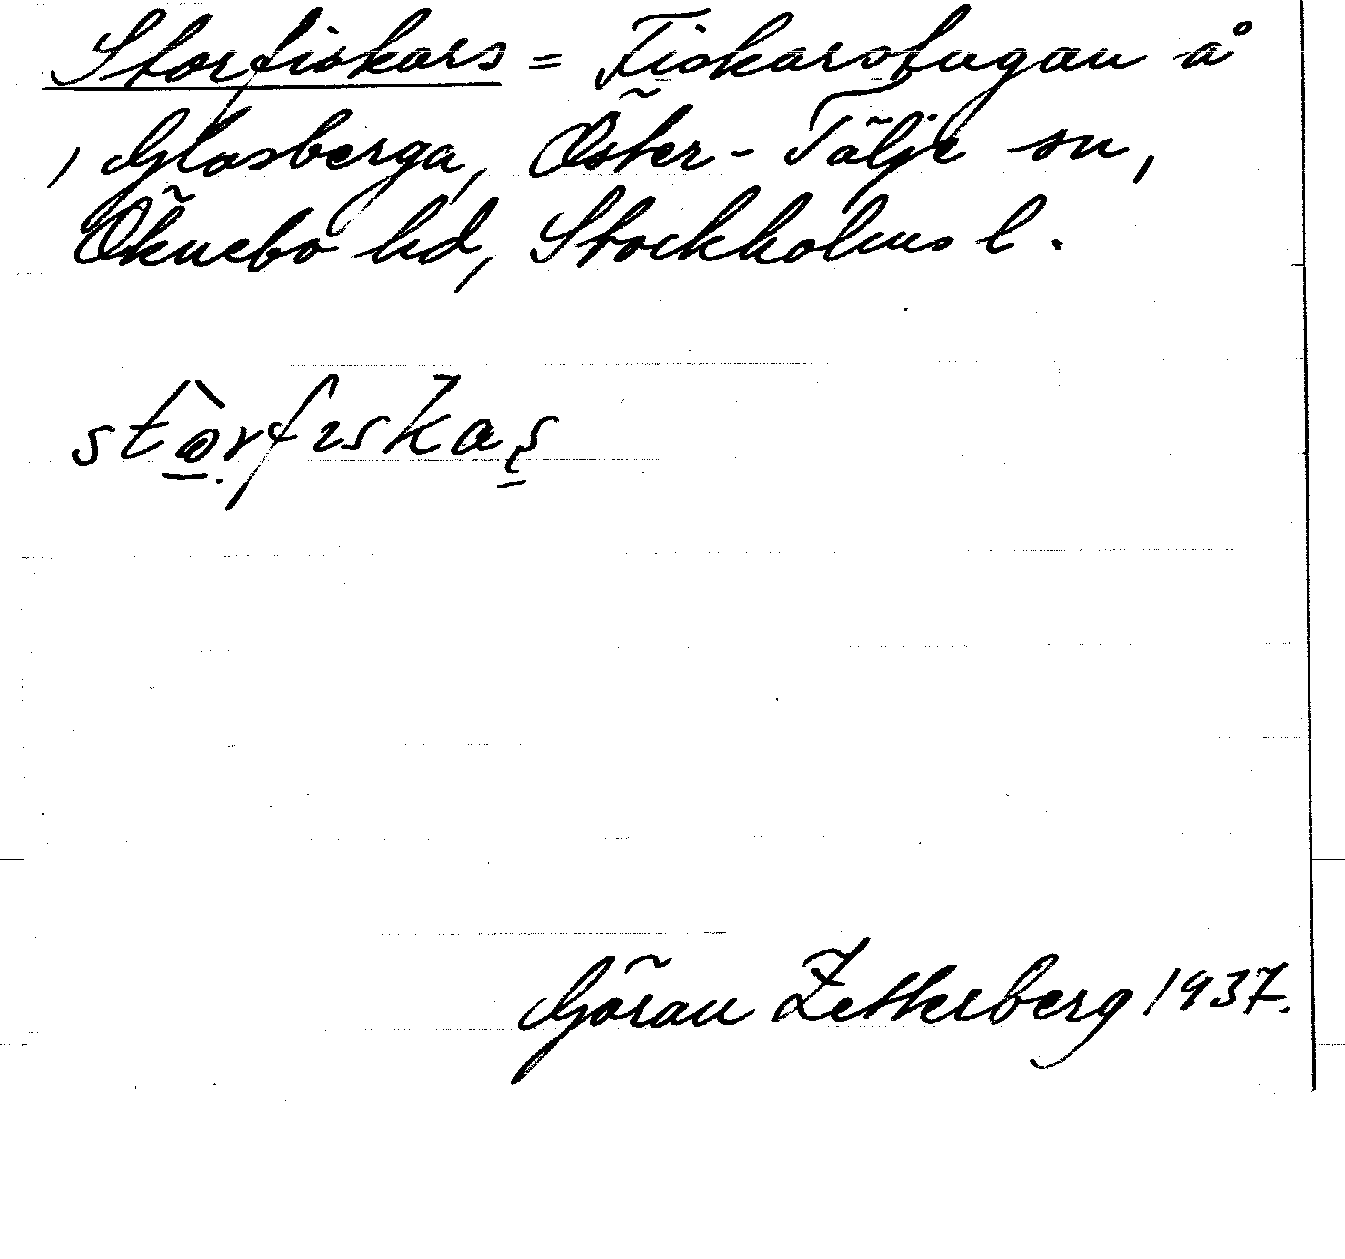 Storfiskars = Fiskarsstugan å
, Glasberga, Öster-Tälje sn,
Öknebo hd, Stockholms l.
Göran Zetterberg 1937.